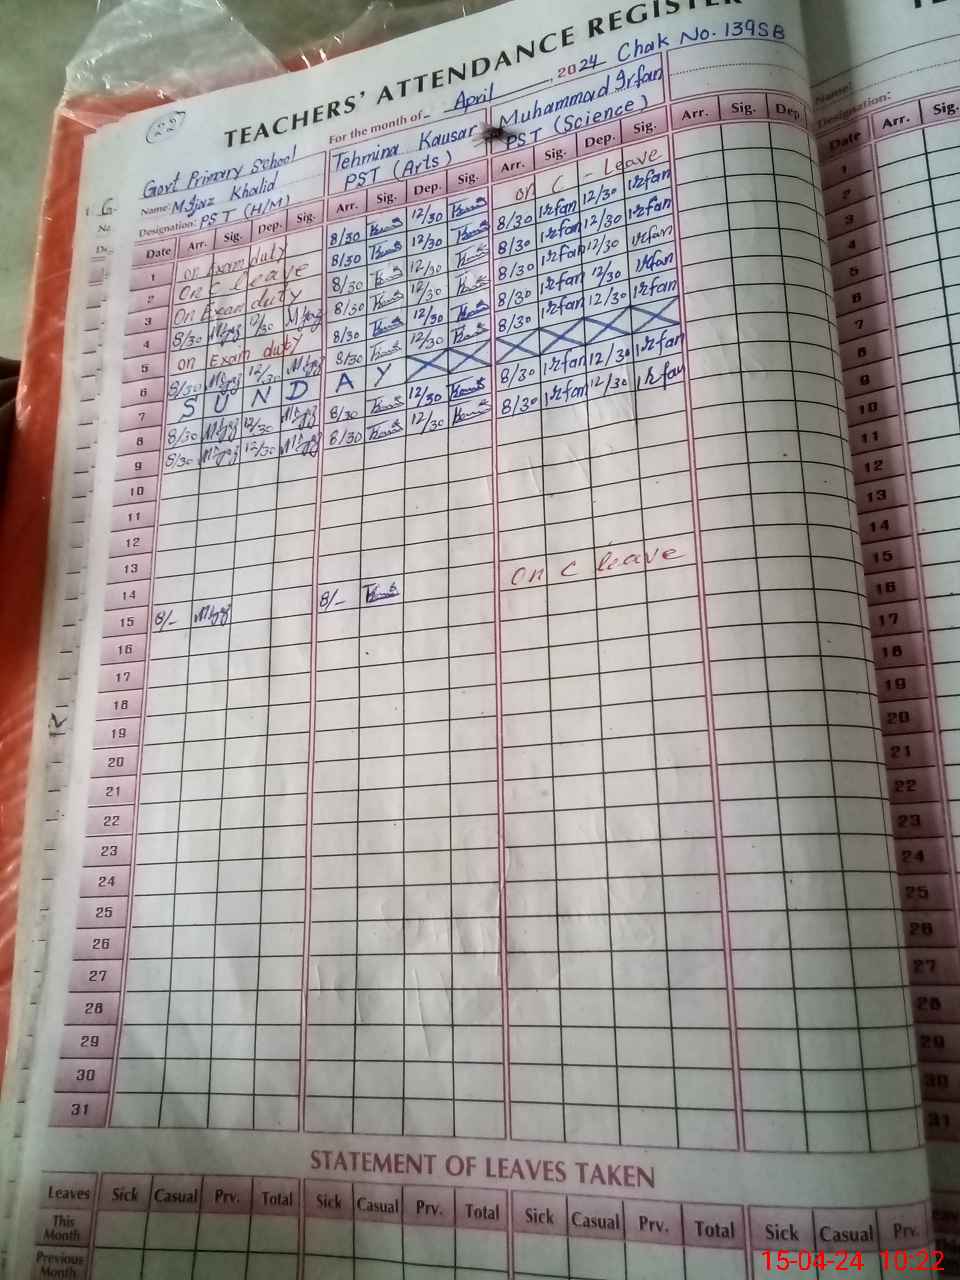 (22)
TEACHERS' ATTENDANCE REGISTER
For the month of April, 2024 Chak No. 139SB
Govt Primary School
Name: M.Ijaz Khalid
Designation: PST (H/M)
Tehmina Kausar
PST (Arts)
Muhammad Irfan
PST (Science)
Name:
Designation:
Date Arr. Sig. Dep. Sig. Arr. Sig. Dep. Sig. Arr. Sig. Dep. Sig. Arr. Sig. Dep. Date Arr. Sig.
1 on Exam duty 8/30 12/30 on C - Leave 1
2 on C leave 8/30 12/30 8/30 irfan 12/30 irfan 2
3 on Exam duty 8/30 12/30 8/30 irfan 12/30 irfan 3
4 8/30 12/30 8/30 12/30 8/30 irfan 12/30 irfan 4
5 on Exam duty 8/30 12/30 8/30 irfan 12/30 irfan 5
6 8/30 12/30 8/30 12/30 8/30 irfan 12/30 irfan 6
7 S U N D A Y 7
8 8/30 12/30 8/30 12/30 8/30 irfan 12/30 irfan 8
9 8/30 12/30 8/30 12/30 8/30 irfan 12/30 irfan 9
10 10
11 11
12 12
13 13
14 14
15 8/- 8/- on C leave 15
16 16
17 17
18 18
19 19
20 20
21 21
22 22
23 23
24 24
25 25
26 26
27 27
28 28
29 29
30 30
31 31
STATEMENT OF LEAVES TAKEN
Leaves Sick Casual Prv. Total Sick Casual Prv. Total Sick Casual Prv. Total Sick Casual Prv.
This Month
Previous Month
15-04-24 10:22